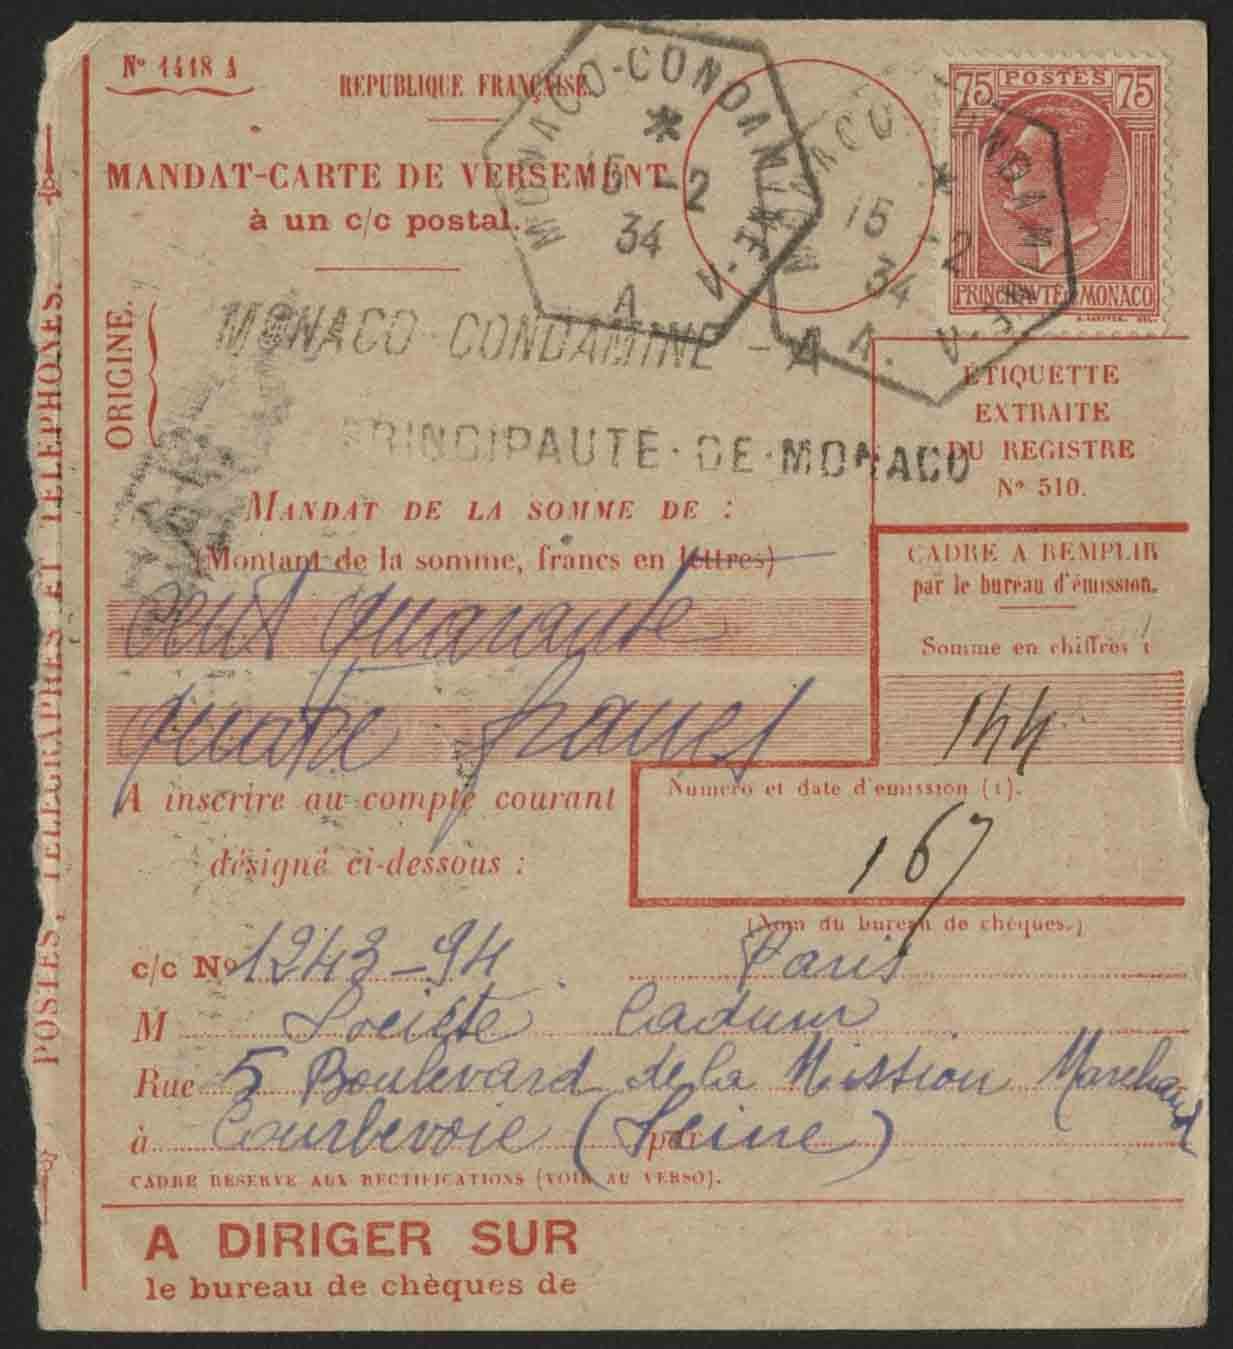 Nº 1418 A
REPUBLIQUE FRANÇAISE
MANDAT-CARTE DE VERSEMENT
à un c/c postal.
MONACO-CONDAMINE A.
15 -2
34
A
MONACO CONDAMINE A.
15 -2
34
75 POSTES 75
PRINCIPAUTÉ DE MONACO
ORIGINE.
MONACO-CONDAMINE - A
PRINCIPAUTE·DE·MONACO
ÉTIQUETTE
EXTRAITE
DU REGISTRE
Nº 510.
MANDAT DE LA SOMME DE :
(Montant de la somme, francs en lettres)
cent quarante
quatre francs
CADRE A REMPLIR
par le bureau d'émission.
Somme en chiffres :
144
Numéro et date d'émission (1).
167
A inscrire au compte courant
désigné ci-dessous :
(Nom du bureau de chèques.)
c/c Nº 1243-94 Paris
M Société Cadum
Rue 5 Boulevard de la Mission Marchand
à Courbevoie (Seine)
CADRE RÉSERVÉ AUX RECTIFICATIONS (VOIR AU VERSO).
A DIRIGER SUR
le bureau de chèques de
POSTES, TÉLÉGRAPHES ET TÉLÉPHONES.